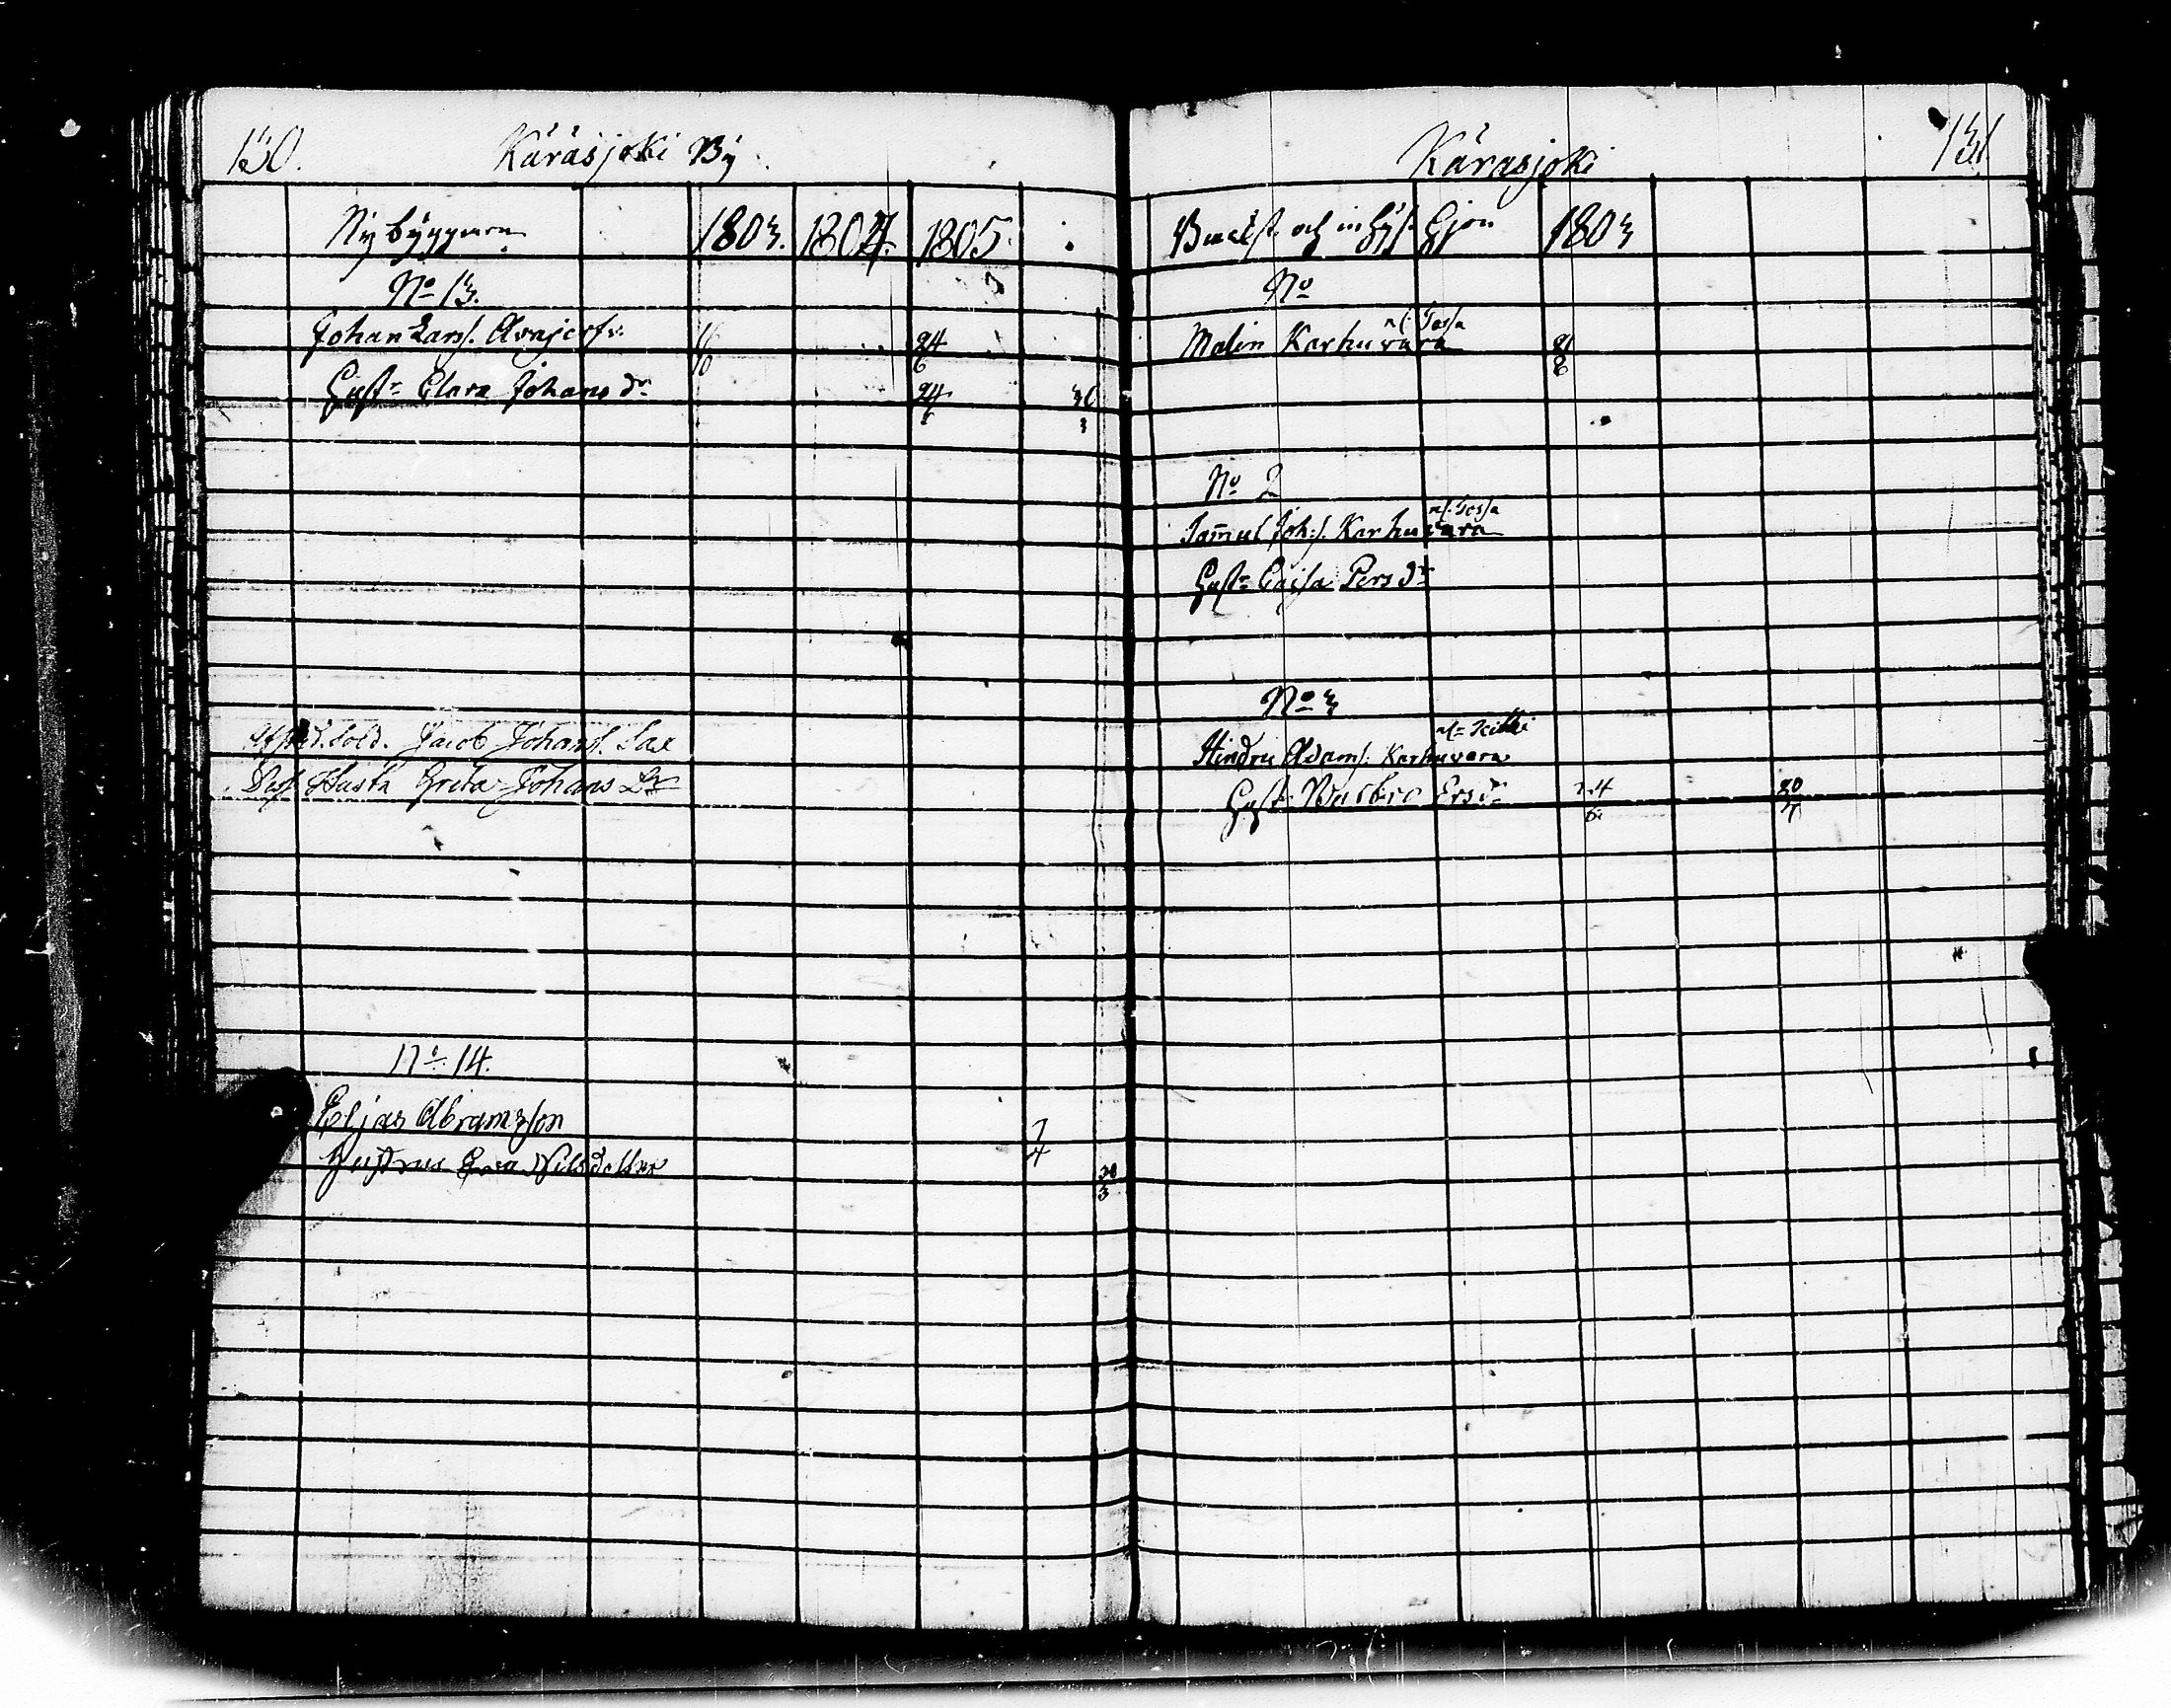 130. Käräsjoki By
Nybyggaren 1803. 1804. 1805.
No 13.
Johan Larss. 16/10 24/6
Hust: Clara Johans dr 24/6 30/3
Afsked. Sold. Jacob Johanss. Sax
Dess Hustr. Greta Johans Dr
No 14.
Elias Abramsson 7/4
Hustrus Eva Nilsdotter 20/3
Kärasjoki 131
och 1803
No
Malin Karhuvara 21/6
No 2
Samul Joh:s. Karhuvara
Hustr Caisa Pers dr
No 3
Hindric Adams. Karhuvara
Hustr Walbro Ers dr 24/6 20/4